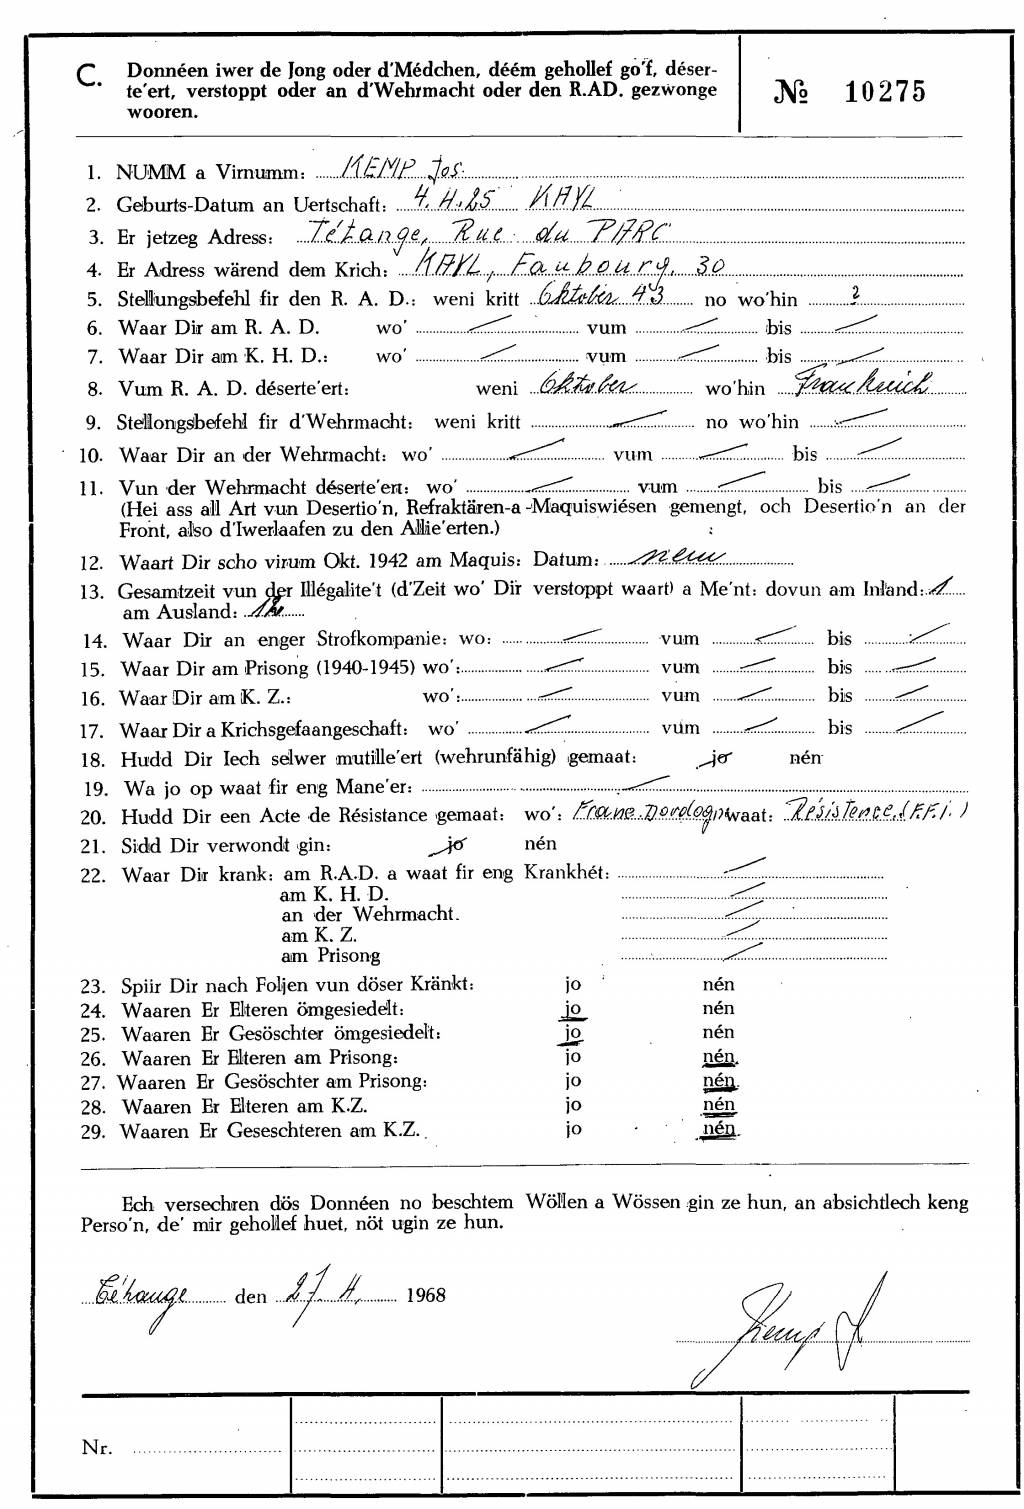 C. Donnéen iwer de Jong oder d'Médchen, déém gehollef go'f, déser-
te'ert, verstoppt oder an d'Wehrmacht oder den R.AD. gezwonge
wooren.
№ 10275
1. NUMM a Virnumm: KEMP Jos.
2. Geburts-Datum an Uertschaft: 4.4.25 KAYL
3. Er jetzeg Adress: Tétange, Rue du PARC
4. Er Adress wärend dem Krich: KAYL, Faubourg, 30
5. Stellungsbefehl fir den R. A. D.: weni kritt Oktober 43 no wo'hin ?
6. Waar Dir am R. A. D. wo' vum bis
7. Waar Dir am K. H. D.: wo' vum bis
8. Vum R. A. D. déserte'ert: weni Oktober wo'hin Frankreich
9. Stellongsbefehl fir d'Wehrmacht: weni kritt no wo'hin
10. Waar Dir an der Wehrmacht: wo' vum bis
11. Vun der Wehrmacht déserte'ert: wo' vum bis
(Hei ass all Art vun Desertio'n, Refraktären-a-Maquiswiésen gemengt, och Desertio'n an der
Front, also d'Iwerlaafen zu den Allie'erten.)
12. Waart Dir scho virum Okt. 1942 am Maquis: Datum: nein
13. Gesamtzeit vun der Illégalite't (d'Zeit wo' Dir verstoppt waart) a Me'nt: dovun am Inland: 1
am Ausland:
14. Waar Dir an enger Strofkompanie: wo: vum bis
15. Waar Dir am Prisong (1940-1945) wo': vum bis
16. Waar Dir am K. Z.: wo': vum bis
17. Waar Dir a Krichsgefaangeschaft: wo' vum bis
18. Hudd Dir Iech selwer mutille'ert (wehrunfähig) gemaat: jo nén
19. Wa jo op waat fir eng Mane'er:
20. Hudd Dir een Acte de Résistance gemaat: wo': Franc. Dordogn waat: Résistence (F.F.i.)
21. Sidd Dir verwondt gin: jo nén
22. Waar Dir krank: am R.A.D. a waat fir eng Krankhét:
am K. H. D.
an der Wehrmacht.
am K. Z.
am Prisong
23. Spiir Dir nach Foljen vun döser Kränkt: jo nén
24. Waaren Er Elteren ömgesiedelt: jo nén
25. Waaren Er Gesöschter ömgesiedelt: jo nén
26. Waaren Er Elteren am Prisong: jo nén
27. Waaren Er Gesöschter am Prisong: jo nén
28. Waaren Er Elteren am K.Z. jo nén
29. Waaren Er Geseschteren am K.Z. jo nén
Ech versechren dös Donnéen no beschtem Wöllen a Wössen gin ze hun, an absichtlech keng
Perso'n, de' mir gehollef huet, nöt ugin ze hun.
Tétange den 27.4. 1968
Kemp J
Nr.